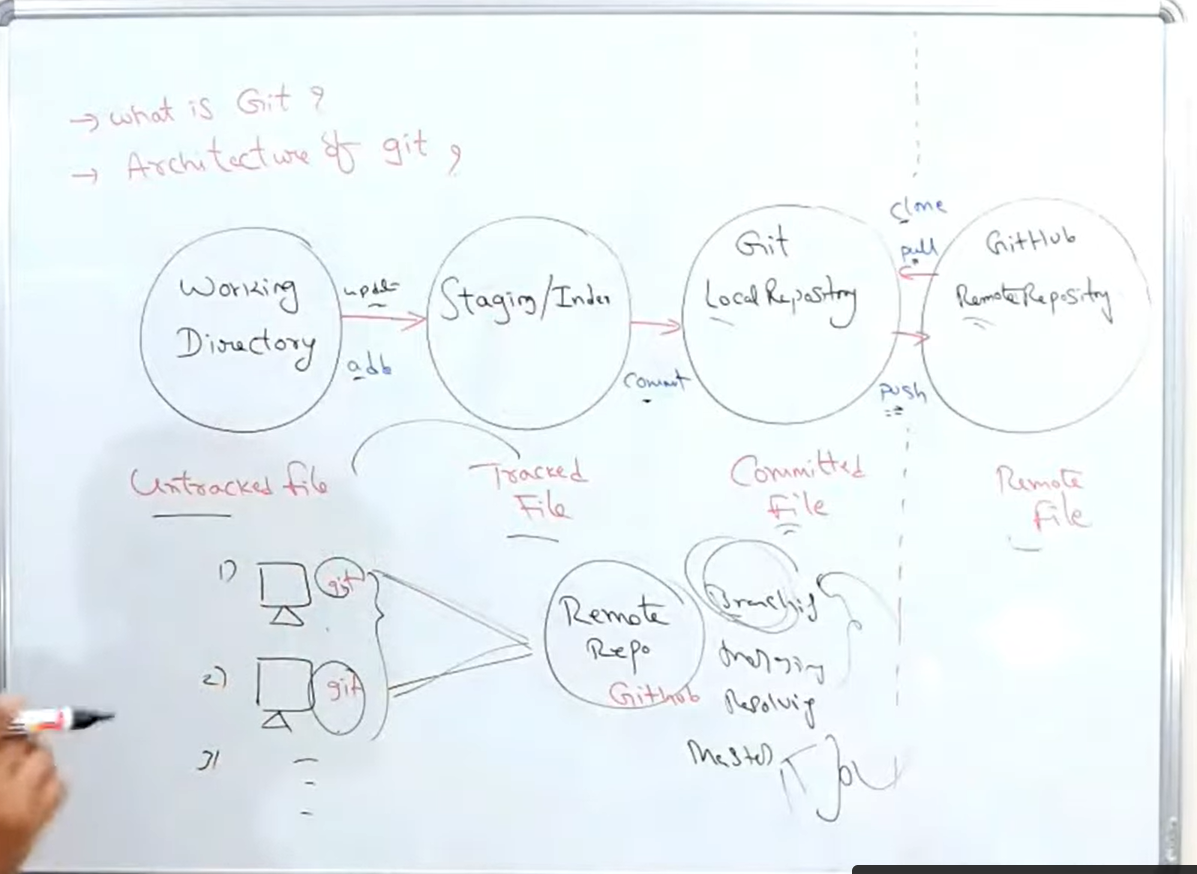 → what is Git ?
→ Architecture of git ?
Working
Directory
update
add
Staging/Index
Commit
Git
Local Repository
clone
pull
push
GitHub
Remote Repository
Untracked file
Tracked
File
Committed
File
Remote
File
1)
git
2)
git
3)
Remote
Repo
Github
Branching
merging
Resolving
Master